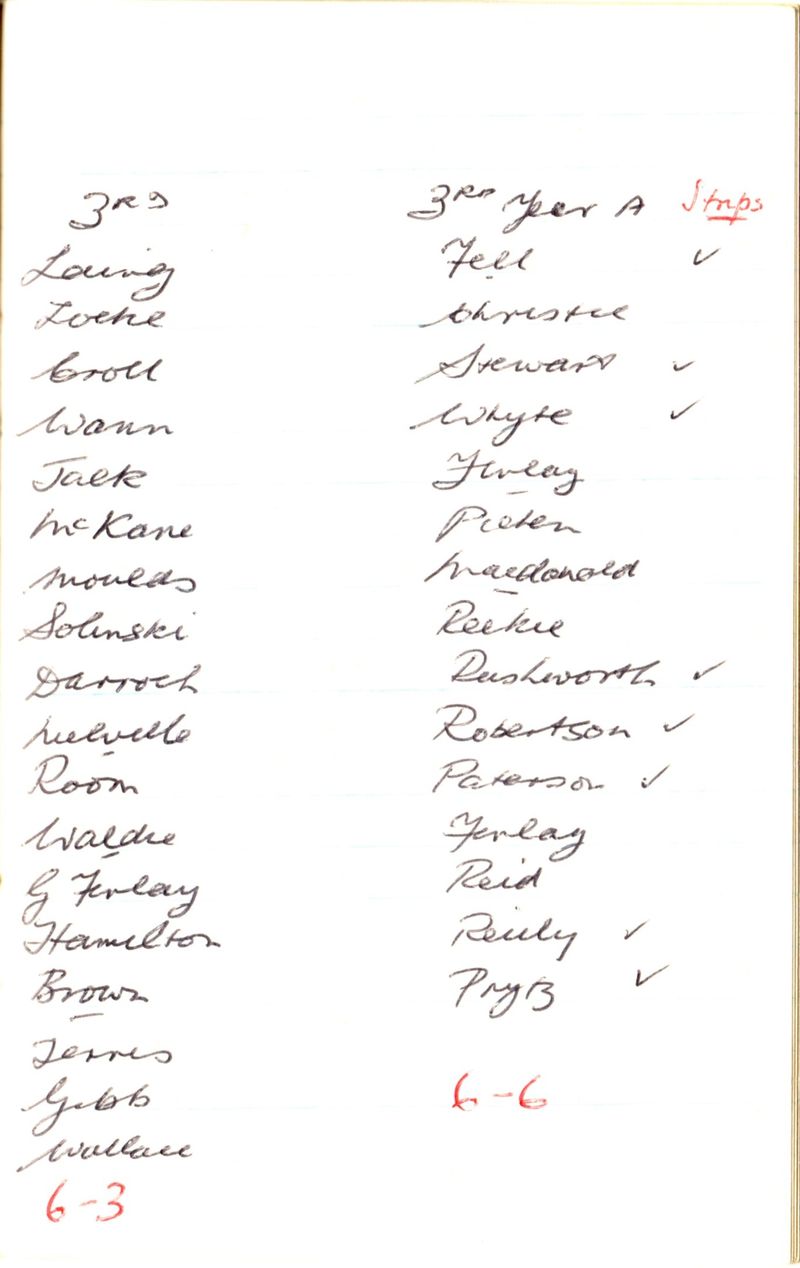 3RD
Laing
Locke
Croll
Wann
Jack
McKane
Moulds
Solinski
Darroch
Melville
Room
Waldie
G Finlay
Hamilton
Brown
Ferries
Gibb
Wallace
6-3
3RD Year A Strips
Fell ✓
Christie
Stewart ✓
Whyte ✓
Finlay
Pieten
Macdonald
Reekie
Rushworth ✓
Robertson ✓
Paterson ✓
Finlay
Reid
Reilly ✓
6-6